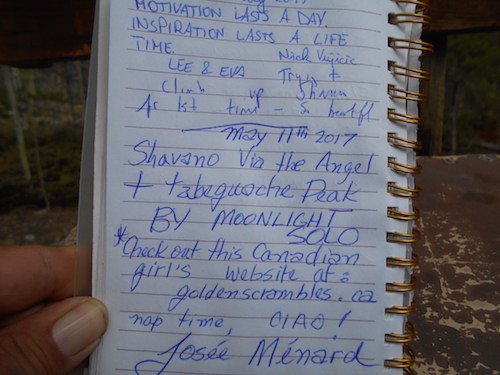 MOTIVATION LASTS A DAY.
INSPIRATION LASTS A LIFE
TIME. Nick Vujicic
LEE & EVA Tryin to
Climb up Shavano
for 1st time - So beautifl
May 11th 2017
Shavano Via the Angel
+ tabeguache Peak
BY MOONLIGHT
SOLO
* Check out this Canadian
girl's website at:
goldenscrambles.ca
nap time, CIAO!
Josée Ménard